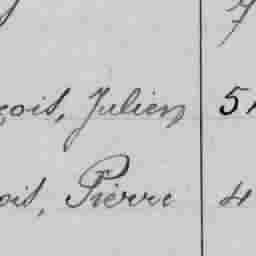 çois, Julien 5
ois, Pierre 4